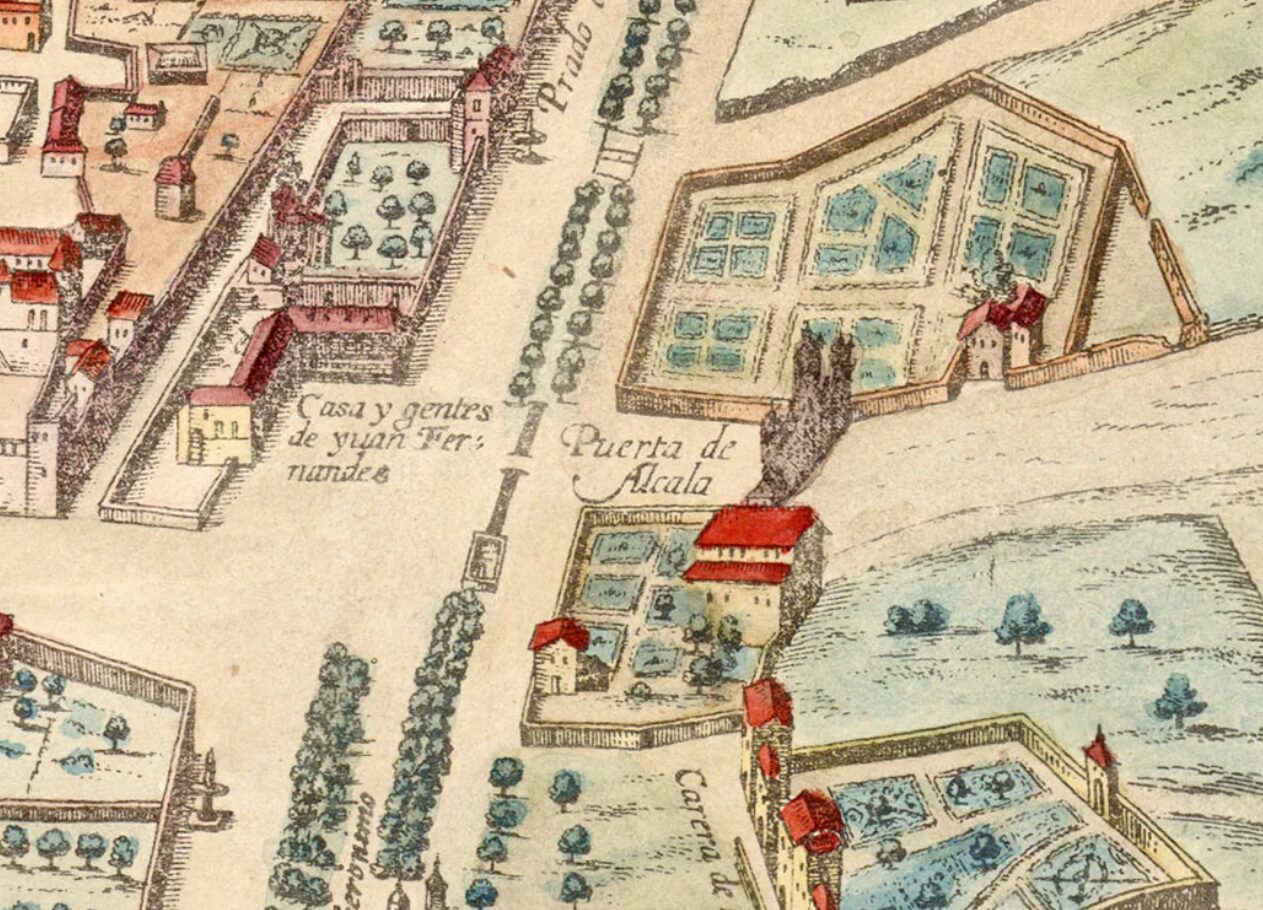 Prado
Casa y gentes
de yuan Fer-
nandes
Puerta de
Alcala
Carera de